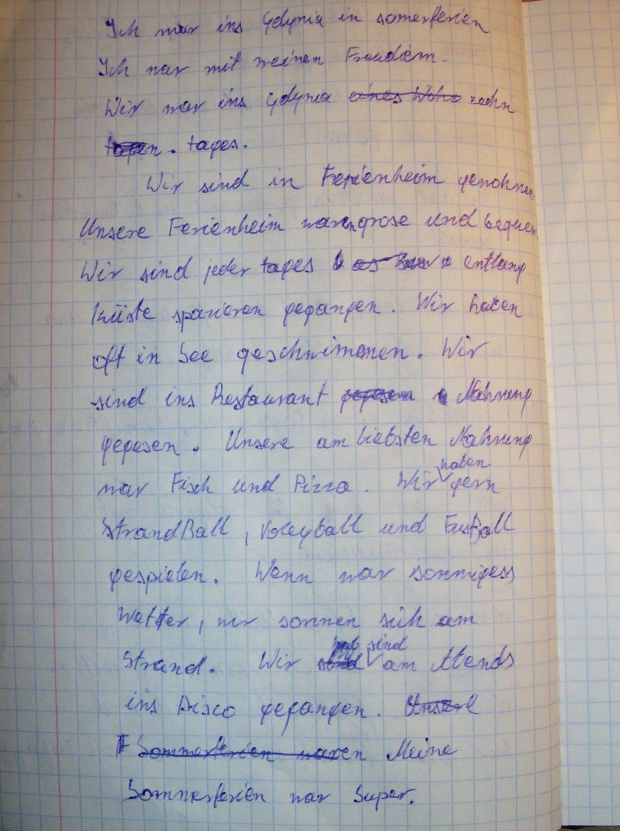 Ich war ins Gdynia in somerferien
Ich war mit meinen Freudem.
Wir war ins Gdynia eines Woho zechn
tagen. tages.
Wir sind in Ferienheim gewohnen
Unsere Ferienheim waren grose und bequem.
Wir sind jeder tages entlang
küste spazieren gegangen. Wir haben
oft in See geschwimmen. Wir
sind ins Restaurant Nahrung
gegesen. Unsere am liebsten Nahrung
war Fisch und Pizza. Wir haben gern
StrandBall, Voleyball und FusBall
gespielen. Wenn war sonnigess
Wetter, wir sonnen sich am
Strand. Wir sind am Abends
ins Disco gegangen. Unsere
Sommerferien waren Meine
Sommerferien war Super.